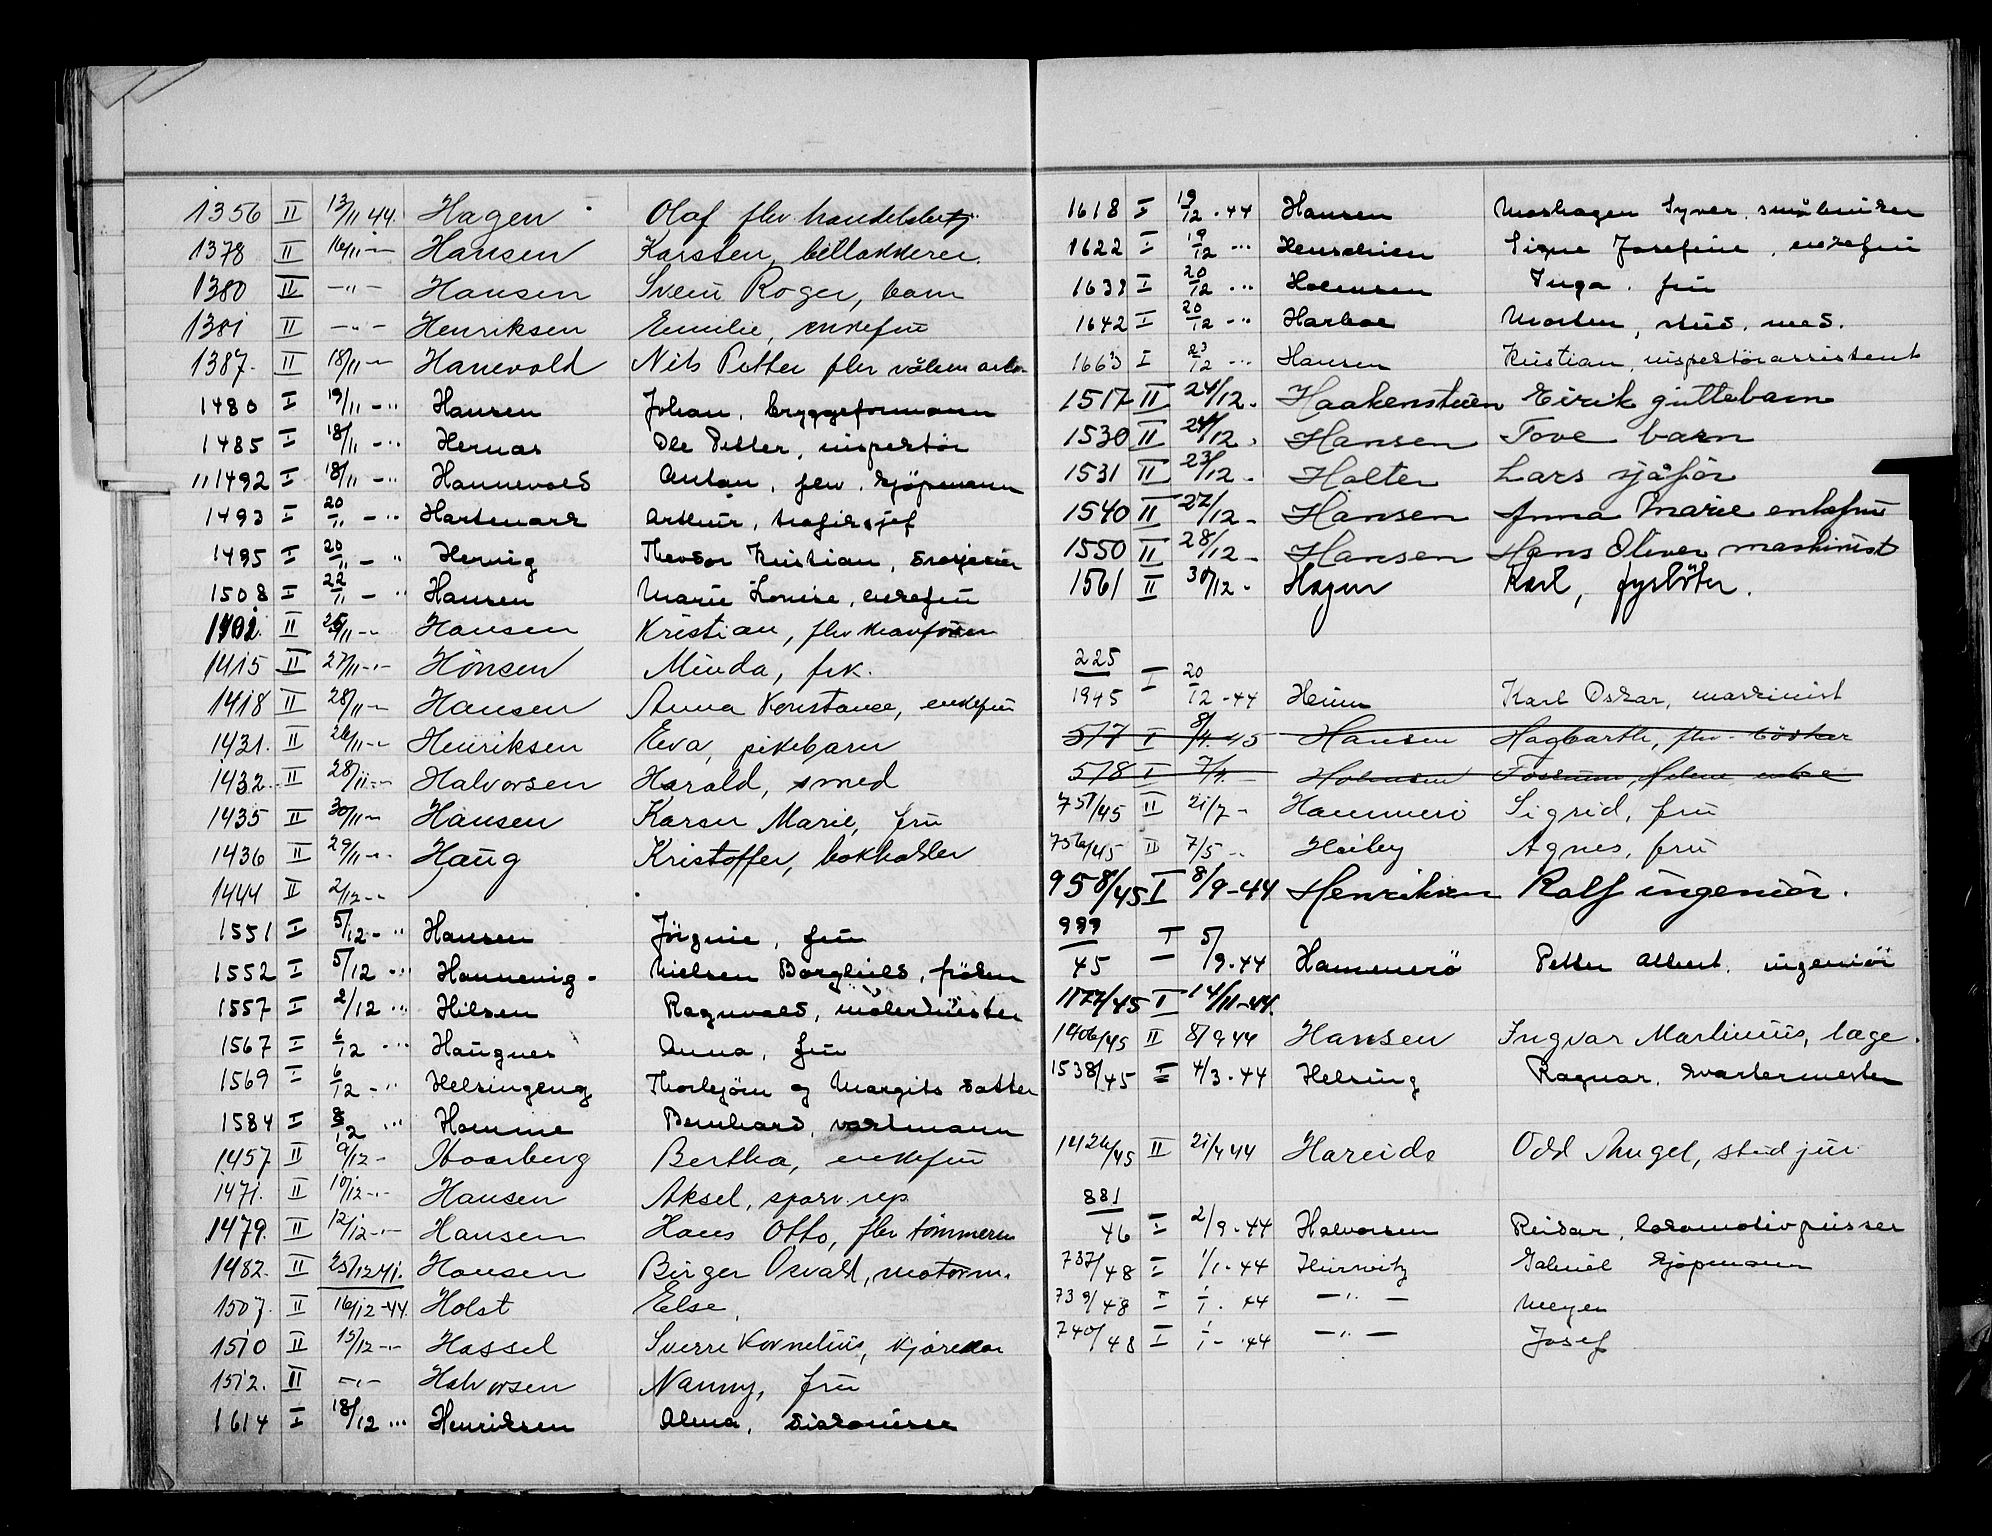 1356 II 13/11 44. Hagen Olaf flev handelsbetj.
1378 II 16/11 -"- Hansen Karsten, billakkerer.
1380 II -"- Hansen Svein Roger, barn
1381 II -"- Henriksen Emilie, enkefru
1387. II 18/11 -"- Hanevold Nils Petter flev
1480 I 19/11 - " Hansen Johan, bryggeformann
1485 I 18/11 - " Hernas Ole Petter, inspektör
1492 I 18/11 - " Hannevold Anton, flev. kjöpmann
1493 I 20/11 - " Hartmark Arthur, trafiksjef
1495 I 20/11 - " Hervig Theodor Kristian,
1508 I 22/11 - " Hansen Marie Louise, enkefru
1402. II 25/11 -"- Hansen Kristian, flev
1415 II 27/11 -"- Hönsen Minda, frk.
1418 II 28/11 -"- Hansen Anna Konstance, enkefru
1431. II 26/11 -"- Henriksen Eva, pikebarn
1432. II 28/11 -"- Halvorsen Harald, smed
1435 II 30/11 -"- Hansen Karen Marie, fru
1436 II 29/11 -"- Haug Kristoffer, bokholder
1444 II 2/12 -"-
1551 I 5/12 - " Hansen Jörgine, fru
1552 I 5/12 - " Hannevig - Nielsen Borghild, fröken
1557 I 2/12 " Hilsen Ragnvald, malermester
1567 I 6/12 " Haugnes Anna, fru
1569 I 6/12 - " Helsingeng Thorbjörn og Margits datter
1584 I 8/12 " Homme Bernhard, vaktmann
1457 II 9/12 - Haarberg Bertha, enkefru
1471. II 10/12 -"- Hansen Aksel, sporv. rep.
1479. II 12/12 -"- Hansen Hans Otto, flev tömmerm
1482. II 25/12 41. Hansen Birger Osvald, motorm.
1507. II 16/12 -44. Holst Else,
1510 II 15/12 -"- Hassel Sverre Kornelius,
1512. II -"- Halvorsen Nanny, fru
1614 I 18/12 " Henriksen Alma, diakonisse
1618 I 19/12 - 44 Hansen Moshagen Syver, småbruker
1622 I 19/12 - " Henschien Signe Josefine, enkefru
1639 I 20/12 - " Halvorsen Inga, fru
1642 I 20/12 - " Harboe Morten, stud. med.
1663 I 23/12 - " Hansen Kristian, inspektörassistent
1517 II 24/12 - Haakenstuen Eirik guttebarn
1530 II 24/12 - Hansen Tove barn
1531 II 23/12 - Holter Lars sjåför
1540 II 27/12 - Hansen Anna Marie enkefru
1550 II 28/12 - Hansen Hans Oliver maskinist
1561 II 30/12 - Hagen Karl, fyrböter.
225/1945 I 20/12 -44 Heum Karl Oskar, maskinist
577 I 8/4. 45 Hansen Hagbarth, flev. bödker
578 I 7/4. - Fossum, Helene enke
751/45 II 21/7 - Hammerö Sigrid, fru
756/45 II 7/5 -"- Heiby Agnes, fru
958/45 I 8/9 -44 Henriksen Rolf ingeniör.
999/45 I 5/9 -44 Hammerö Petter Albert, ingeniör
1177/45 I 14/11 -44.
1406/45 II 8/9 44 Hansen Ingvar Martinius, læge.
1538/45 I 4/3 -44 Helsing Ragnar, kvartermester
1426/45 II 21/4 44 Hareide Odd Angel, stud jur
881/46 I 2/9 -44 Halvorsen Reidar, lokomotivpusser
737/48 I 1/1 -44 Hurwitz Gabriel kjöpmann
739/48 I 1/1 - 44 - " - Meyer
740/48 I 1/1 - 44 - " - Josef